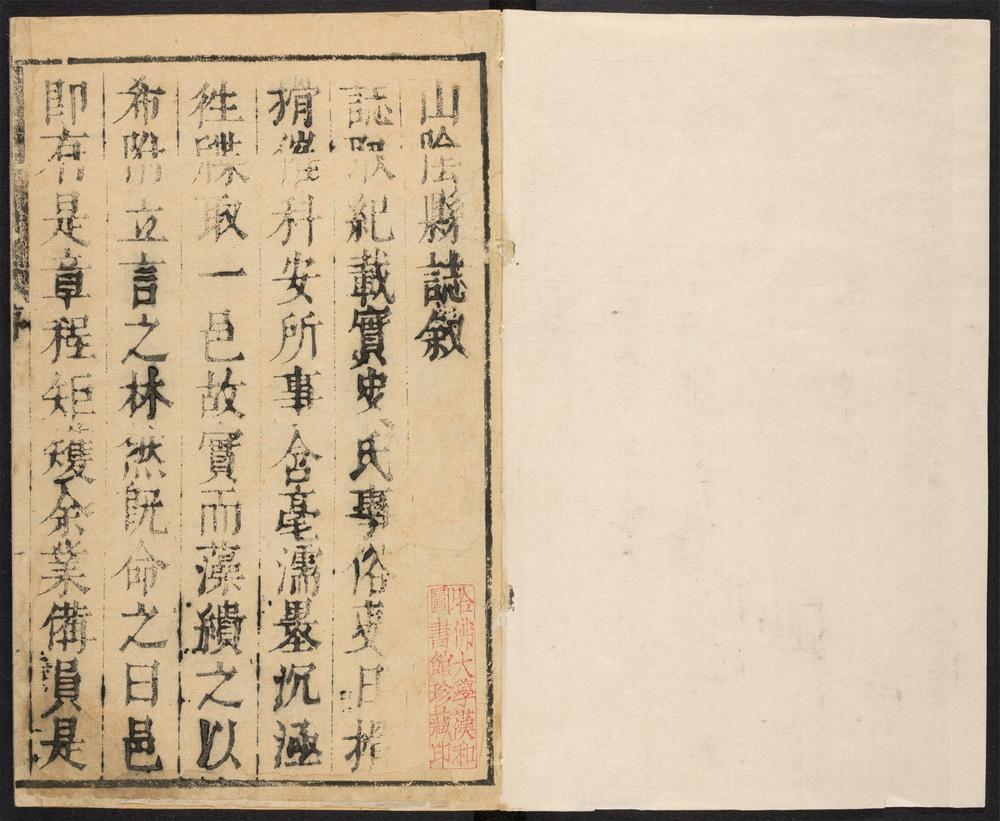 山陰縣誌敘
誌取紀載實史氏專俗吏日
猾催科安所事含毫濡墨沉涵
往牒取一邑故實而藻繢之以
希附立言之林然既命之曰邑
即有是章程矩矱余業備員是
哈佛大學漢和
圖書館珍藏印
序